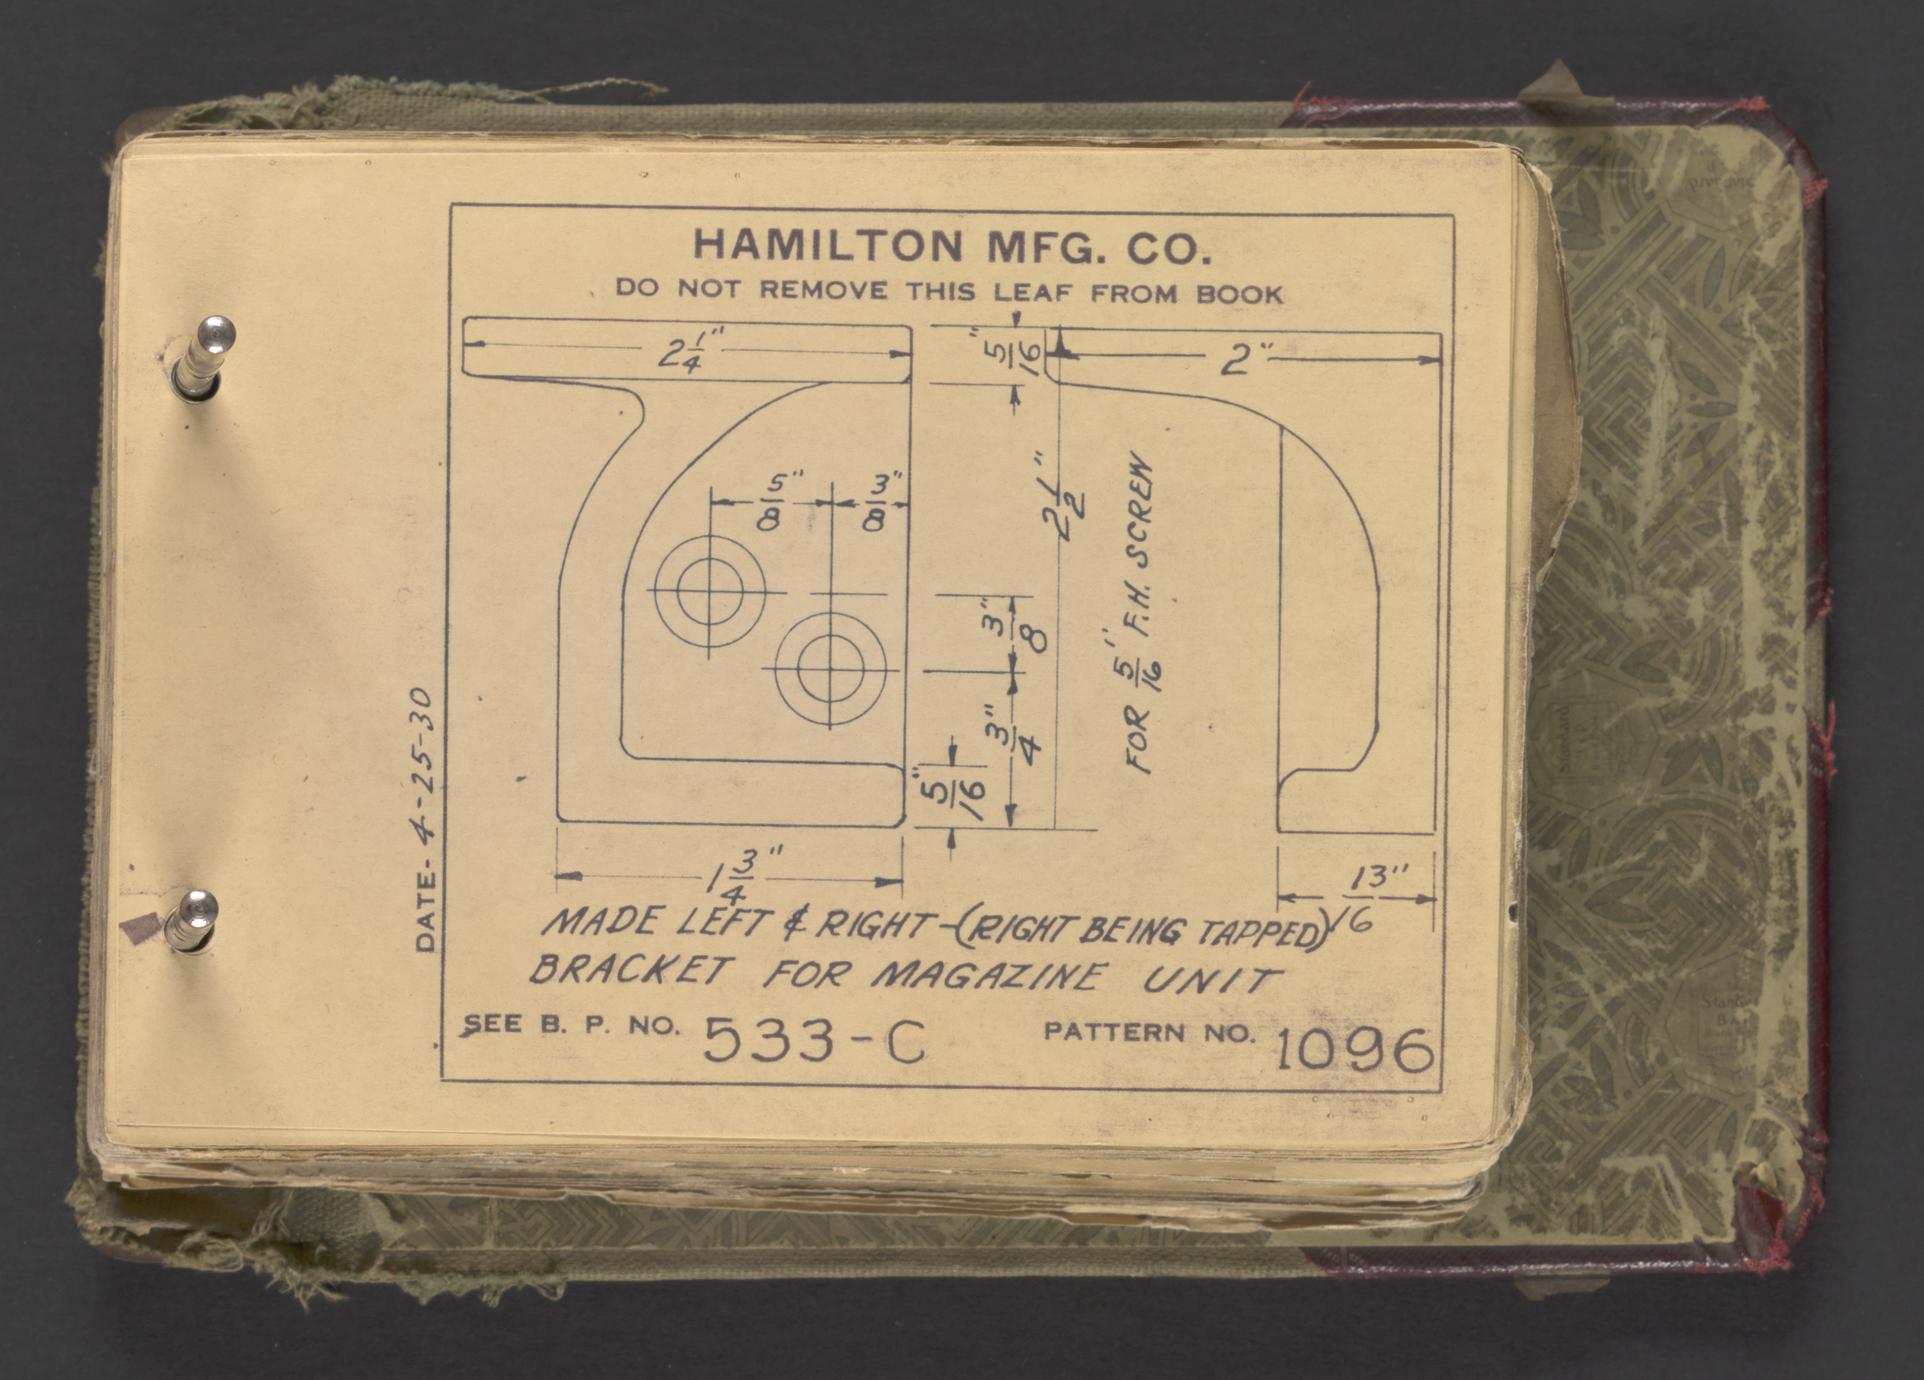 HAMILTON MFG. CO.
DO NOT REMOVE THIS LEAF FROM BOOK
2 1/4"
5/16"
2"
5/8"
3/8"
2 1/2"
FOR 5/16" F.H. SCREW
3/8"
3/4"
5/16"
1 3/4"
13/16"
DATE- 4-25-30
MADE LEFT & RIGHT-(RIGHT BEING TAPPED)
BRACKET FOR MAGAZINE UNIT
SEE B. P. NO. 533-C PATTERN NO. 1096